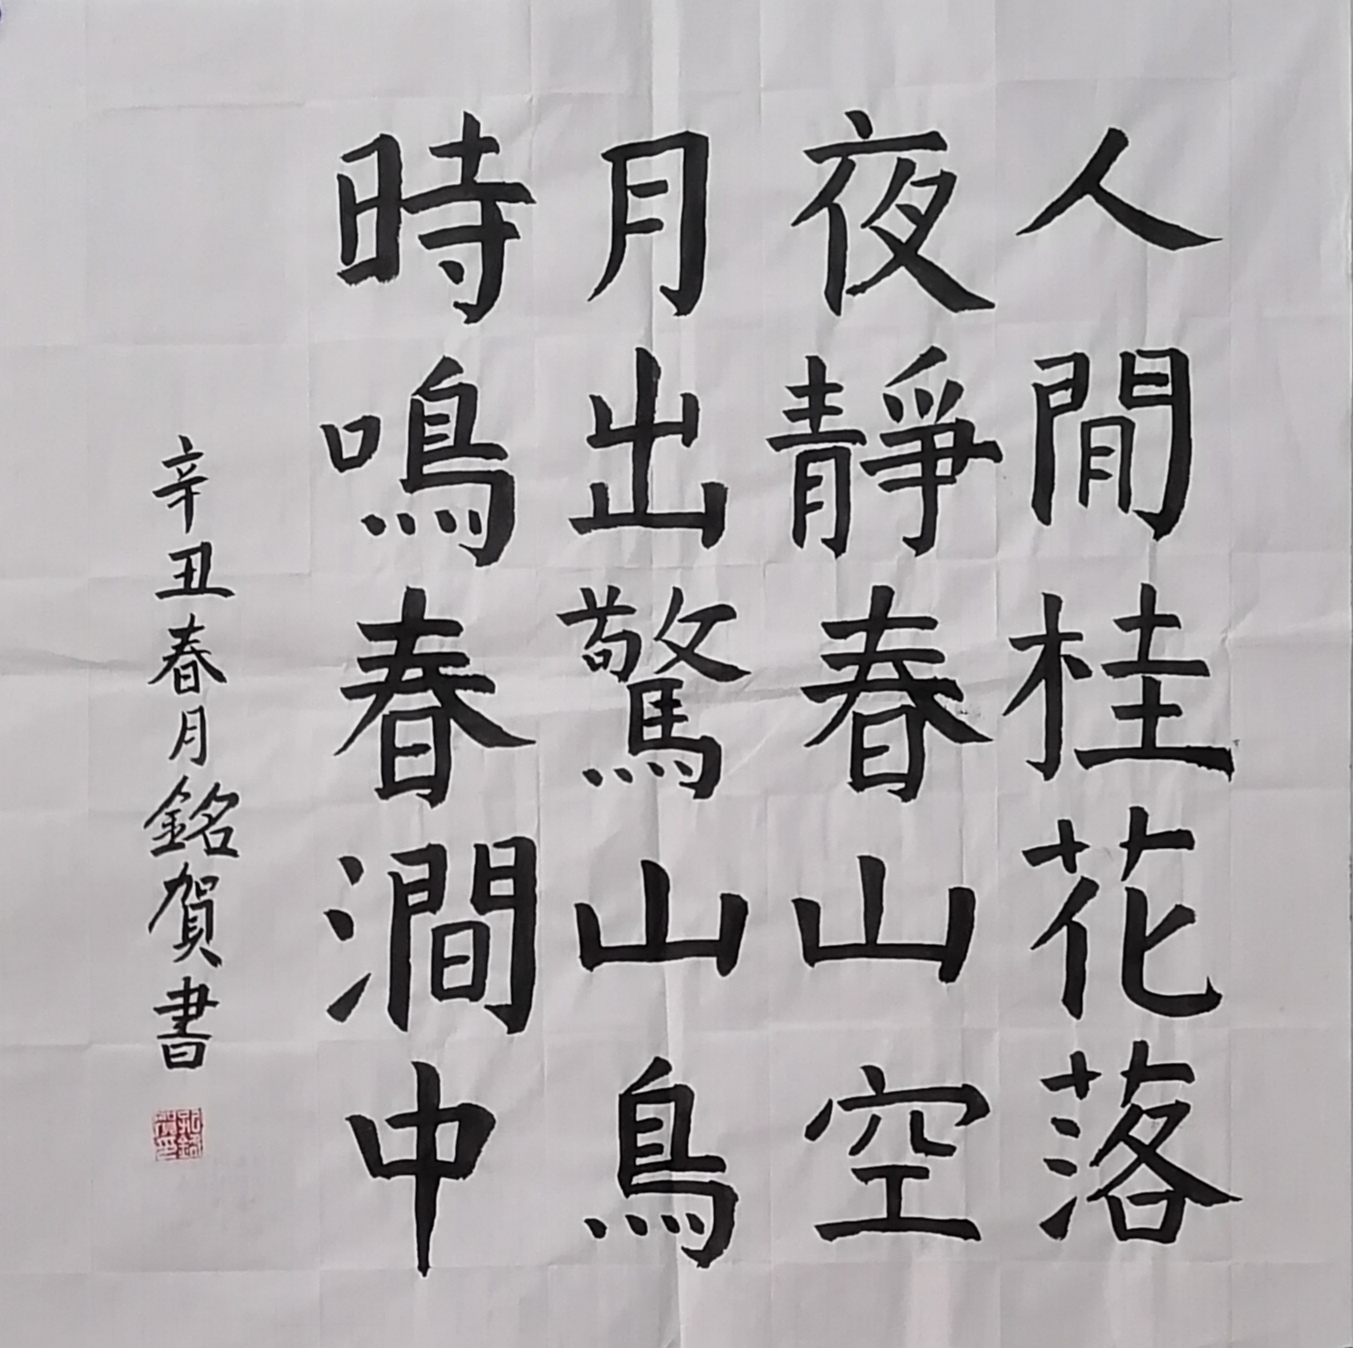 人閒桂花落
夜靜春山空
月出驚山鳥
時鳴春澗中
辛丑春月銘賀書